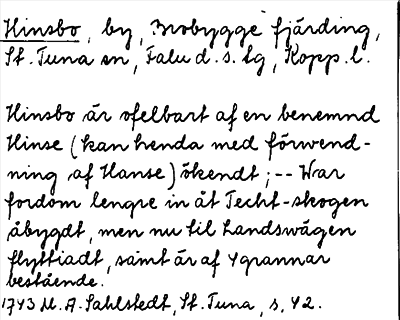 Hinsbo, by, Brobygge fjärding,
St. Tuna sn, Falu d. s. lg, Kopp. l.
Hinsbo är ofelbart af en benemnd
Hinse (kan henda med förwend-
ning af Hanse) ökendt; -- War
fordom lengre in åt Techt-skogen
åbygdt, men nu til Landswägen
flyttiadt, samt är af 4 grannar
bestående.
1743 M. A. Sahlstedt, St. Tuna, s. 42.